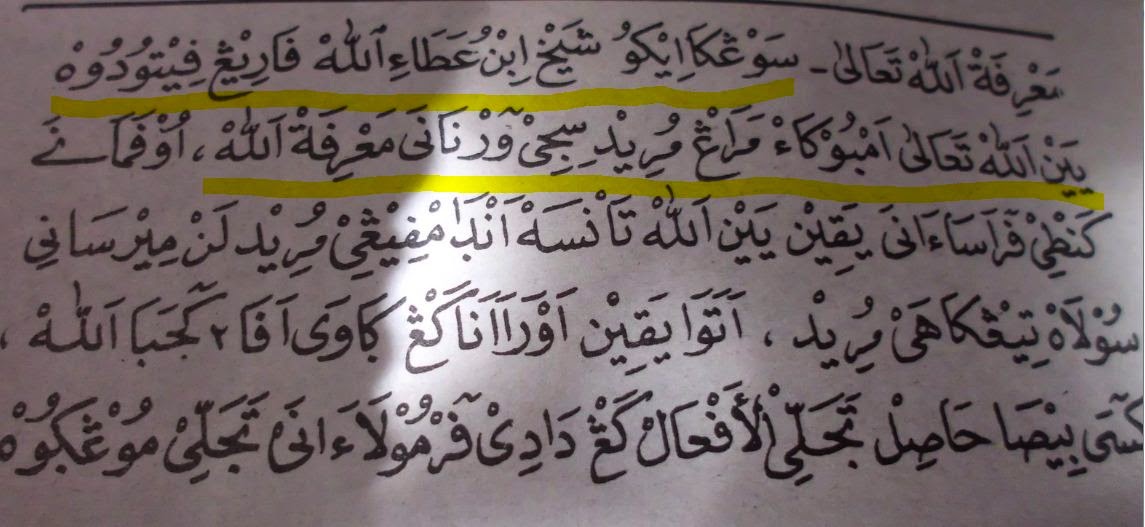 مَعْرِفَةْ اَللّٰهْ تَعَالٰى ـ سَوْڠْكَا اِيْكُوْ شَيْخْ اِبْنُ عَطَاءِ اَللّٰهْ فَارِيْڠْ فِيْتُوْدُوْهْ
يَيْنْ اَللّٰهْ تَعَالٰى اَمْبُوْكَاءْ مَرَاڠْ مُرِيْدْ سِجِيْ وَرْنَانَىْ مَعْرِفَةْ اَللّٰهْ، اُوْفَمَانَے
كَنْطِيْ فَرَاسَاءَانَىْ يَقِيْنْ يَيْنْ اَللّٰهْ تَانْسَهْ اَنْدَامْفِيْڠِيْ مُرِيْدْ لَنْ مِيْرْسَانِي
سُوْلَاهْ تِيڠْكَاهَىْ مُرِيْدْ ، اَتَوَا يَقِيْنْ اَوْرَا اَنَا كَڠْ كَاوَىْ اَفَا٢ كَجَبَا اَللّٰهْ ،
كَسَىْ بِيْصَا حَاصِلْ تَجَلِّيْ اْلأَفْعَالْ كَڠْ دَادِىْ فَرْمُوْلَاءَانَىْ تَجَلِّيْ مُوْڠْكُوْهْ